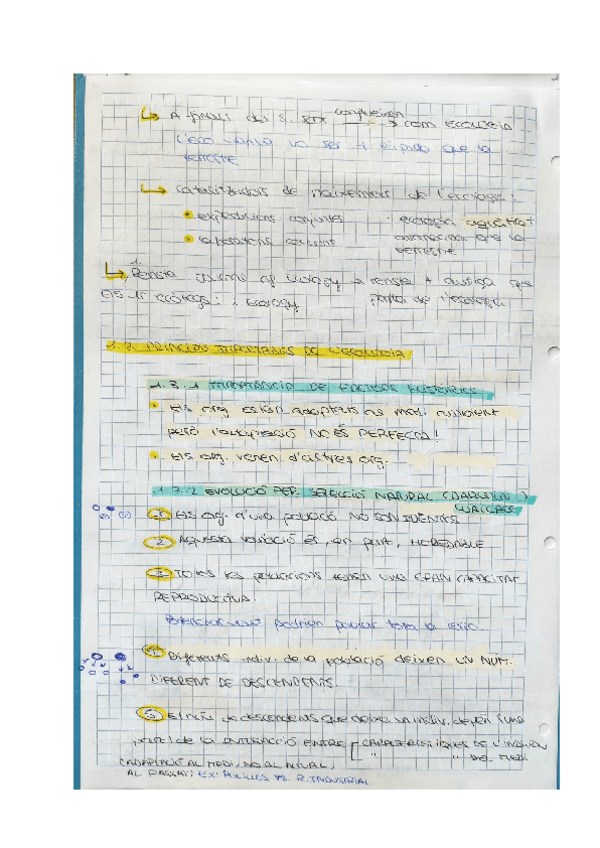 ↳ A finals del S. XIX coneixem → com ECOLOGIA
L'eco vegetal va ser + ràpida que la
terrestre
↳ catalitzadors de naixement de l'ecologia:
• expedicions conjuntes · ecologia aquàtica +
• laboratoris avançada que la
terrestre
↳ Revista Journal of Ecology → revista + antiga que
Els 1r ecòlegs: : Ecology parla de l'ecologia
1.3. PRINCIPIS IMPORTANTS DE L'ECOLOGIA
1.3.1 IMPORTÀNCIA DE FACTORS HISTÒRICS
• Els org. estan adaptats al medi ambient
però l'adaptació NO ÉS PERFECTA!
• Els org. venen d'altres org.
1.3.2 EVOLUCIÓ PER SELECCIÓ NATURAL (DARWIN)
WALLACE
1 Els org. d'una població NO SÓN IDÈNTICS
2 Aquesta variació és, en part, HEREDABLE
3 TOTES les poblacions tenen UNA GRAN CAPACITAT
REPRODUCTIVA.
Potencialment podrien poblar tota la
4 Diferents indiv. de la població deixen UN NUM.
DIFERENT DE DESCENDENTS.
5 El núm de descendents que deixa un indiv. depèn (una
part) de la INTERACCIÓ ENTRE [CARACTERÍSTIQUES DE L'INDIVIDU
" " DEL MEDI
(ADAPTACIÓ AL MEDI, NO AL ACTUAL,
AL PASSAT) Ex: POLILLES VS. R. INDUSTRIAL